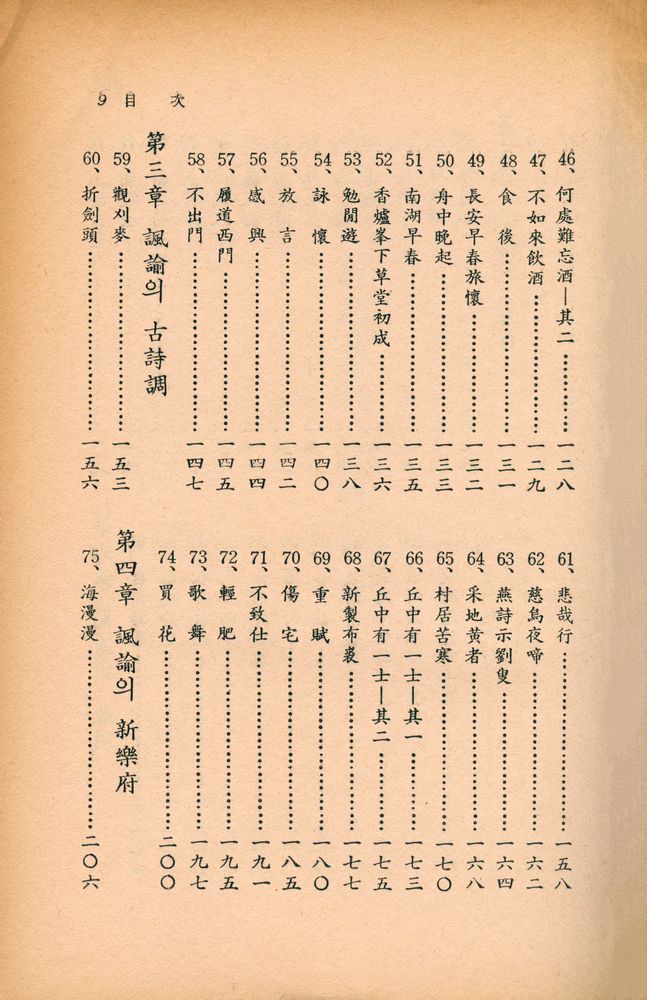 9 目 次
46、何處難忘酒—其二…………一二八
47、不如來飮酒…………一二九
48、食 後…………一三一
49、長安早春旅懷…………一三二
50、舟中晩起…………一三三
51、南湖早春…………一三五
52、香爐峯下草堂初成…………一三六
53、勉閒遊…………一三八
54、詠 懷…………一四〇
55、放 言…………一四二
56、感 興…………一四四
57、履道西門…………一四五
58、不出門…………一四七
第三章 諷諭의 古詩調
59、觀刈麥…………一五三
60、折劍頭…………一五六
61、悲哉行…………一五八
62、慈烏夜啼…………一六二
63、燕詩示劉叟…………一六四
64、采地黃者…………一六八
65、村居苦寒…………一七〇
66、丘中有一士—其一…………一七三
67、丘中有一士—其二…………一七五
68、新製布裘…………一七七
69、重 賦…………一八〇
70、傷 宅…………一八五
71、不致仕…………一九一
72、輕 肥…………一九五
73、歌 舞…………一九七
74、買 花…………二〇〇
第四章 諷諭의 新樂府
75、海漫漫…………二〇六